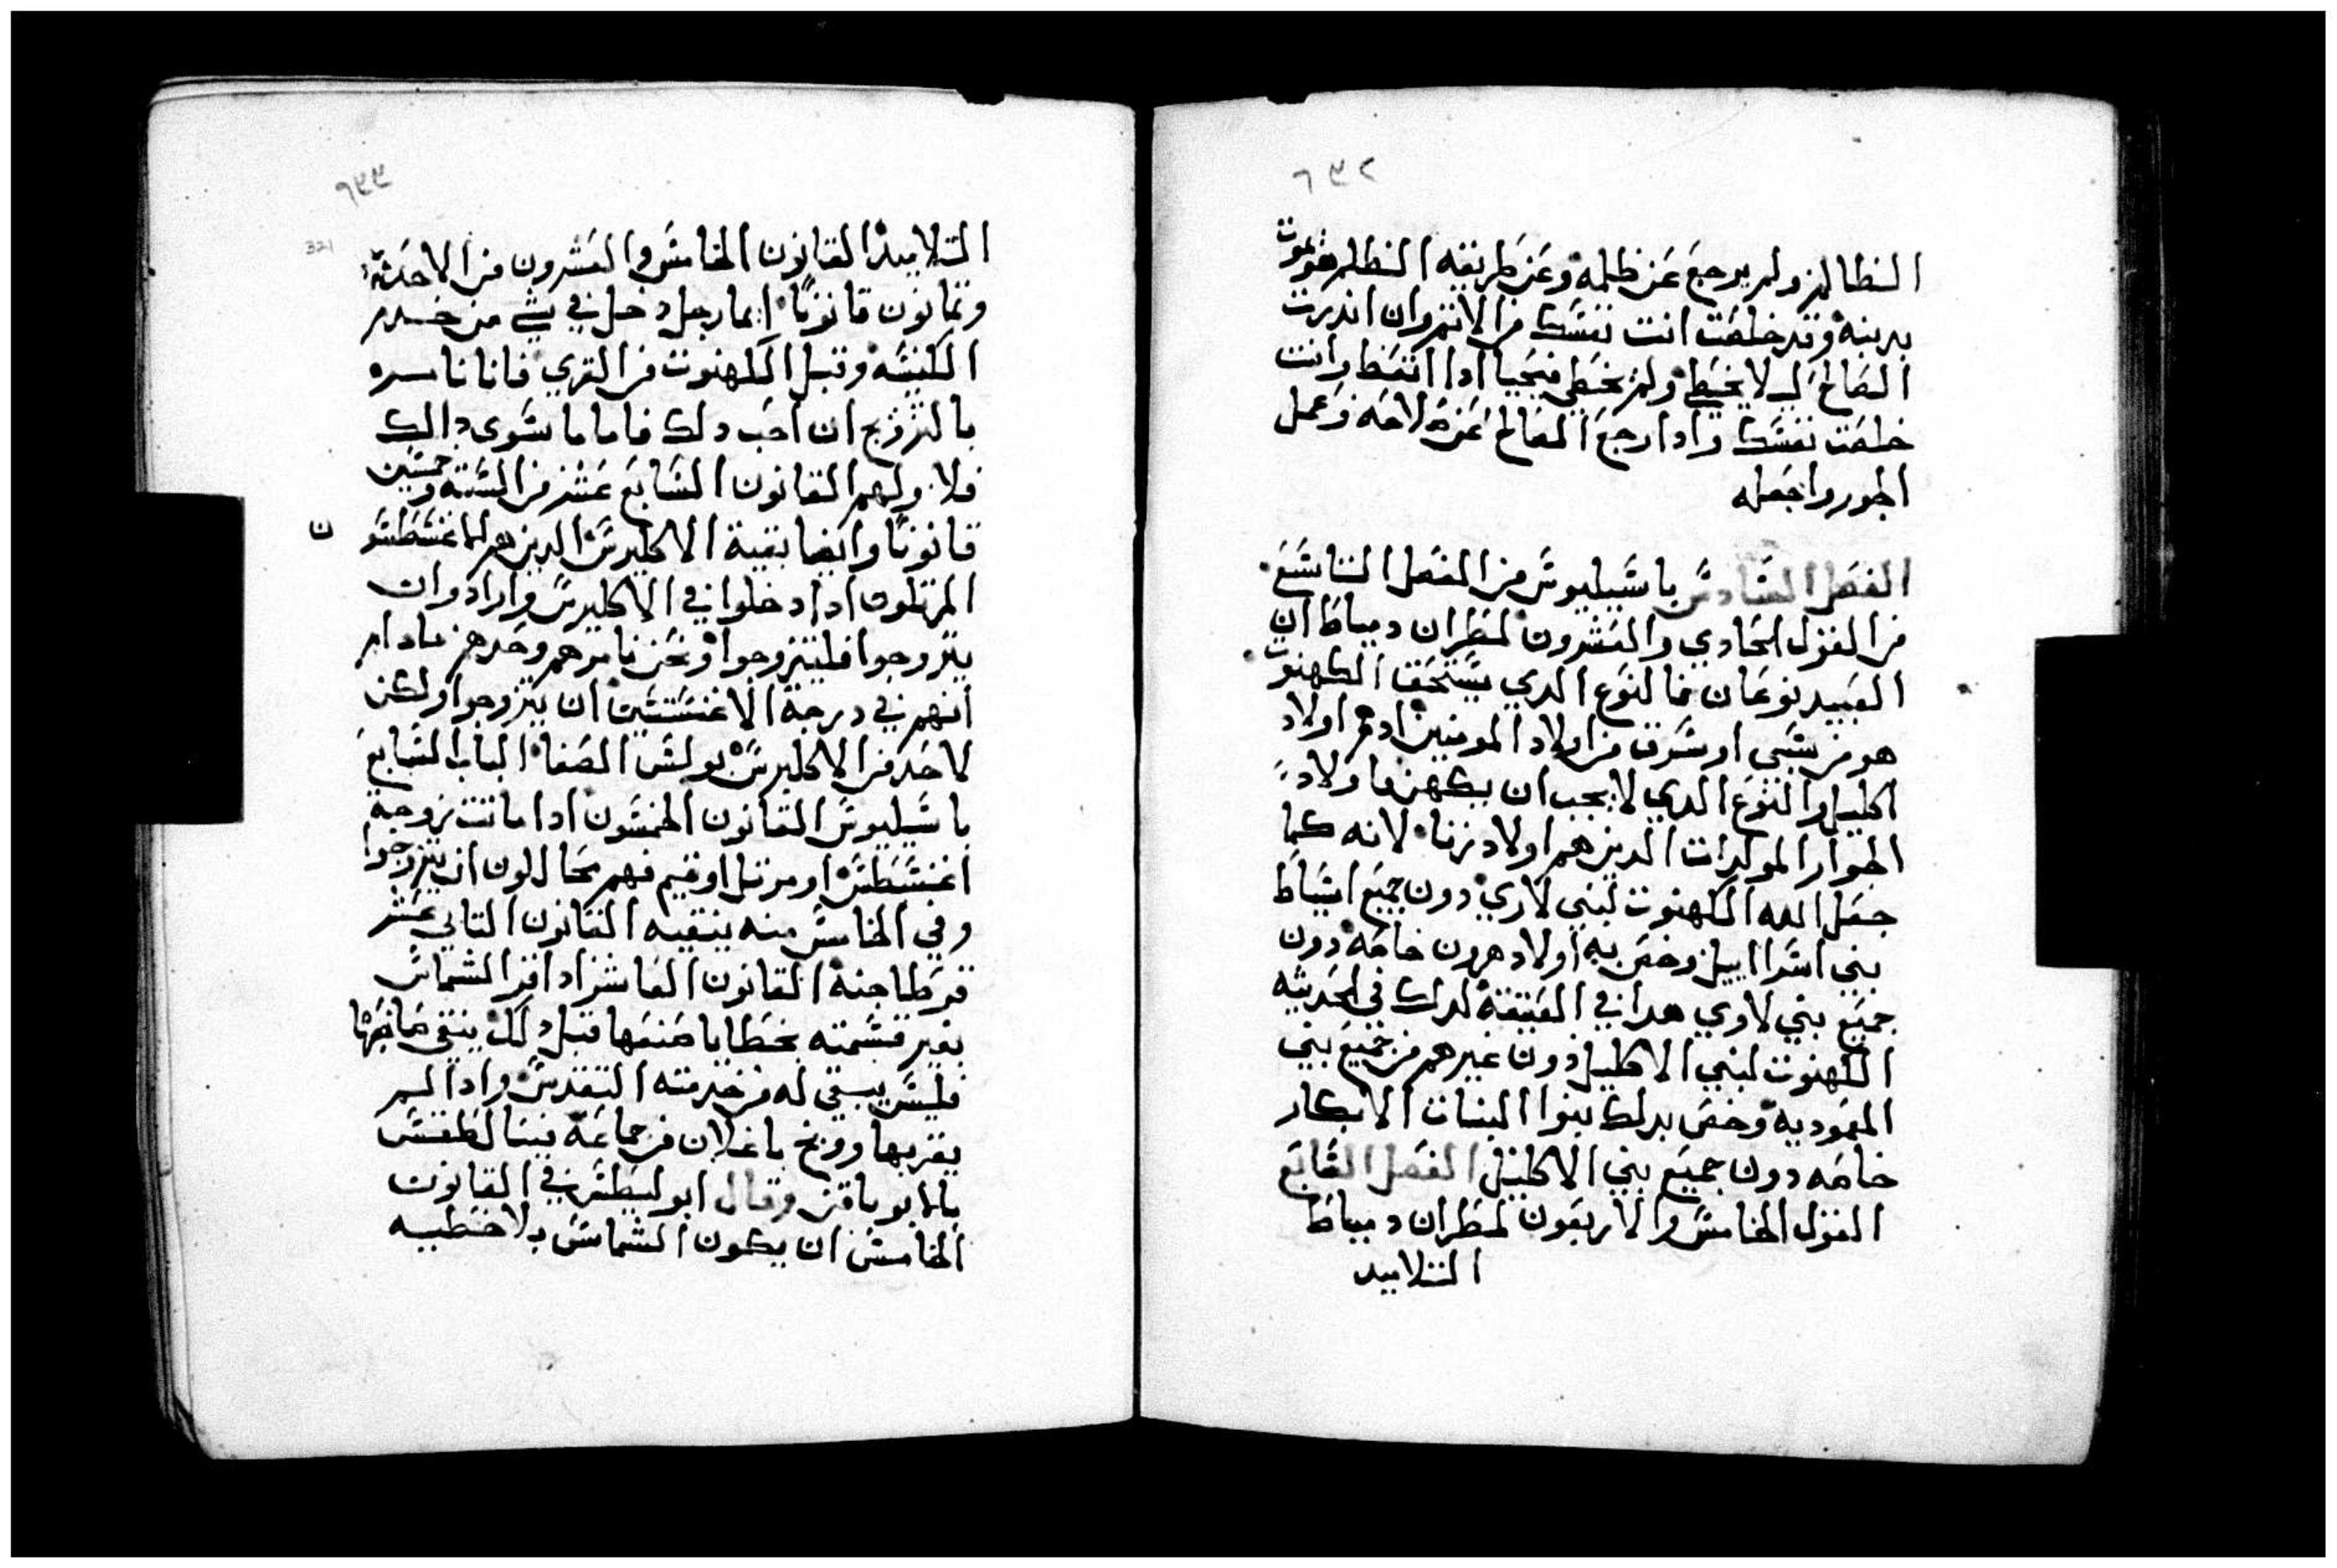 ٦٣٢
الظالم ولم يرجع عن ظلمه وعن طريقه الظلم هو يموت
بدينه وقد خلصت انت نفسك من الاثم وان اندرت
الصالح لا يخطي ولم يخطي فيحيا ادا اتعظ وانت
خلصت نفسك وادا رجع الصالح عن صلاحه وعمل
الجور واجعله
الفصل السادس باسيليوس من الفصل التاسع
من القول الحادي والعشرون لمطران دمياط ان
العبيد نوعان فالنوع الدي يستحق الكهنوت
هو من سبي او سرق من اولاد المومنين او هم اولاد
اكليل والنوع الدي لا يجب ان يكهن فاولاد
الجوار المولدات الدين هم اولاد زنا لانه كما
جعل الله الكهنوت لبني لاوي دون جميع اسباط
بني اسراييل وخص به اولاد هرون خاصه دون
جميع بني لاوي هدا في العتيقة لدلك في الحديثه
الكهنوت لبني الاكليل دون غيرهم من جميع بني
المعموديه وخص بدلك بنوا البنات الابكار
خاصه دون جميع بني الاكليل الفصل السابع
القول الخامس والاربعون لمطران دمياط
التلاميد
٦٣٣
321
التلاميد القانون الخامس والعشرون من الاحد
وثمانون قانونًا ايما رجل دخل في شي من خدم
الكنيسه وقبل الكهنوت من القري فانا نامره
بالتزويج ان احب دلك فاما ما سوي دالك
فلا ولهم القانون السابع عشر من الستة وخمسين
قانونًا وايضا بقية الاكليرس الدين هم اغنسطسو
ن
المرتلون ادا دخلوا في الاكليرس وارادوا ان
يتزوجوا فليتزوجوا ونحن نامرهم وحدهم مادام
انهم في درجة الاغنسسين ان يتزوجوا ولكن
لاحد من الاكليرس بولس الصفا الباب السابع
باسيليوس القانون الخمسون ادا ماتت زوجة
اغنسطس او مرتل او قيم فهم محاللون ان يتزوجوا
وفي الخامس منه ينقيه القانون التاني عشر
قرطاجنة القانون العاشر ادا اقر الشماس
بغير قسمته بخطايا صنعها قبل دلك ينقى صانعها
فليس يبقي له من خدمته التقديس وادا لم
يقر بها ووبخ باعلان من جماعة فيبنا لطقس
بالابوياقن وقال ابوليطس في القانون
الخامس ان يكون الشماس بلا خطيه